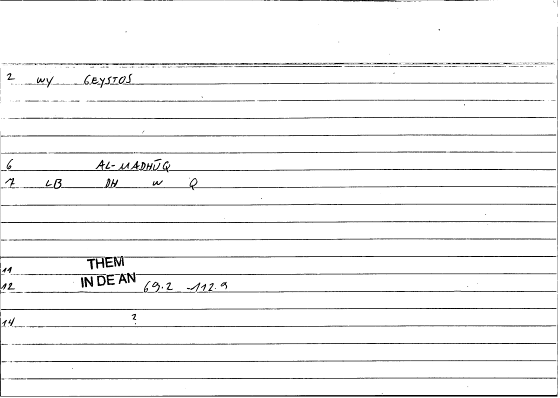 2 WY GEYSTOS
6 AL-MADHŪQ
7 LB DH W Q
11 THEM
12 IN DE AN 69.2 -112.9
14 ?